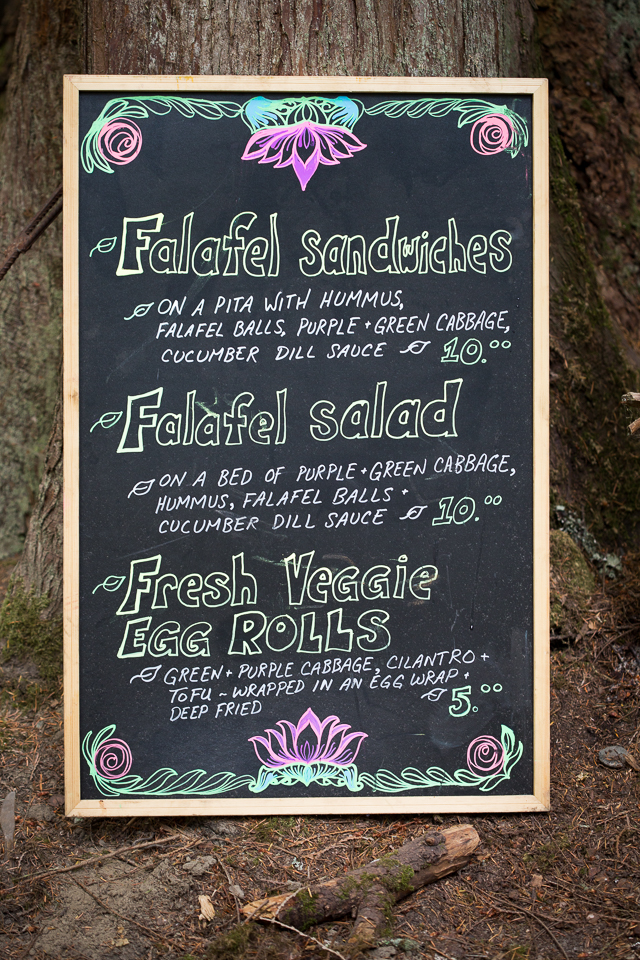 Falafel sandwiches
ON A PITA WITH HUMMUS,
FALAFEL BALLS, PURPLE + GREEN CABBAGE,
CUCUMBER DILL SAUCE 10.00
Falafel salad
ON A BED OF PURPLE + GREEN CABBAGE,
HUMMUS, FALAFEL BALLS +
CUCUMBER DILL SAUCE 10.00
Fresh Veggie
EGG ROLLS
GREEN + PURPLE CABBAGE, CILANTRO +
TOFU ~ WRAPPED IN AN EGG WRAP +
DEEP FRIED 5.00